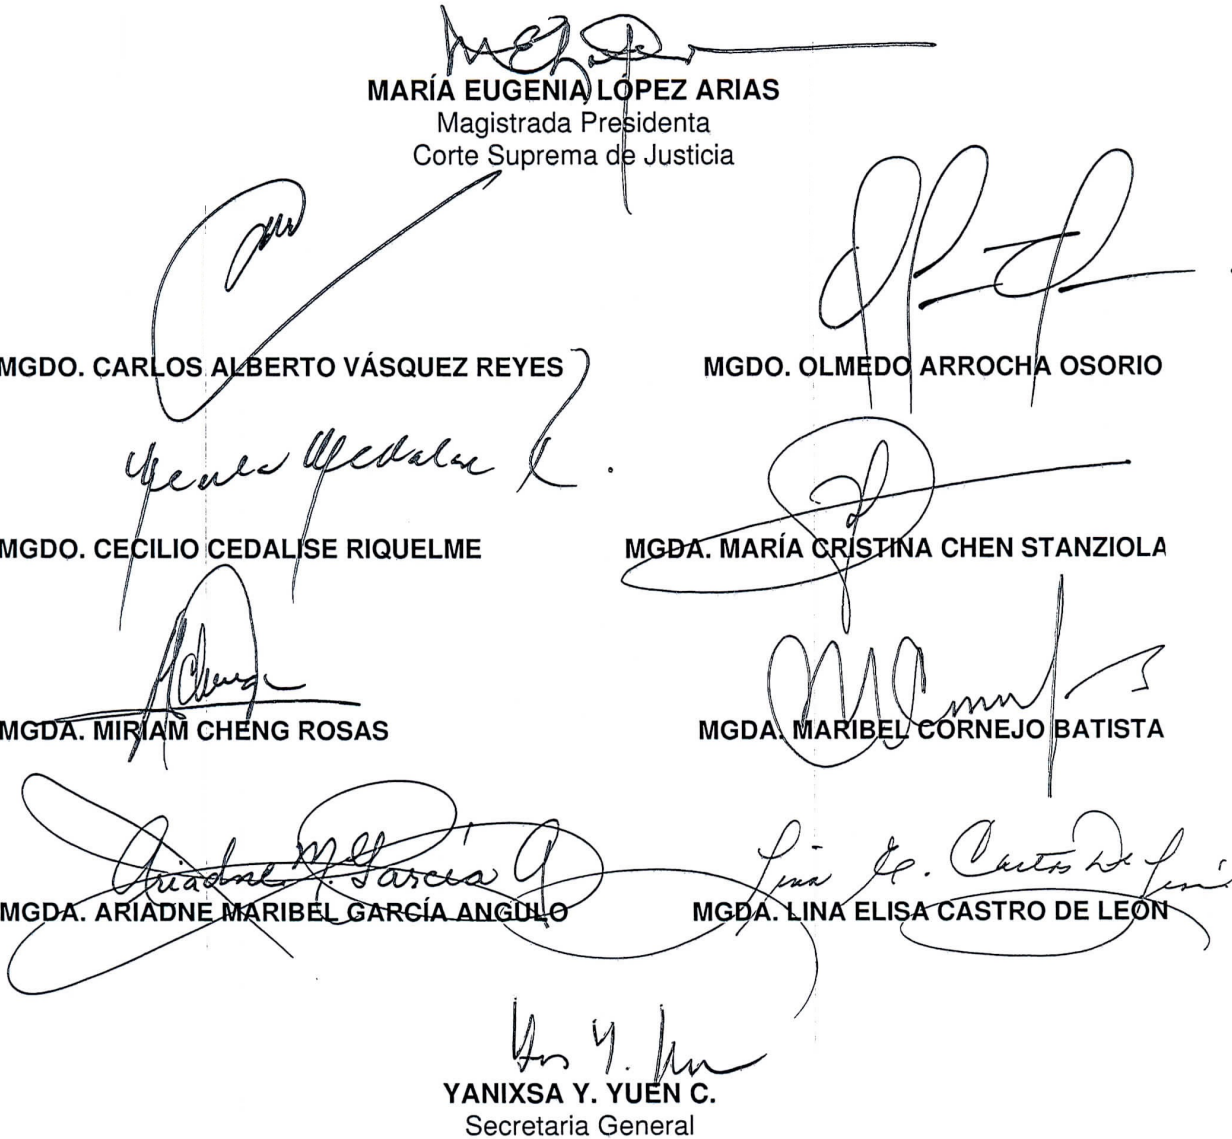 MARÍA EUGENIA LÓPEZ ARIAS
Magistrada Presidenta
Corte Suprema de Justicia
MGDO. CARLOS ALBERTO VÁSQUEZ REYES
MGDO. OLMEDO ARROCHA OSORIO
MGDO. CECILIO CEDALISE RIQUELME
MGDA. MARÍA CRISTINA CHEN STANZIOLA
MGDA. MIRIAM CHENG ROSAS
MGDA. MARIBEL CORNEJO BATISTA
Ariadne M. García
MGDA. ARIADNE MARIBEL GARCÍA ANGULO
Lina E. Castro De León
MGDA. LINA ELISA CASTRO DE LEÓN
YANIXSA Y. YUEN C.
Secretaria General